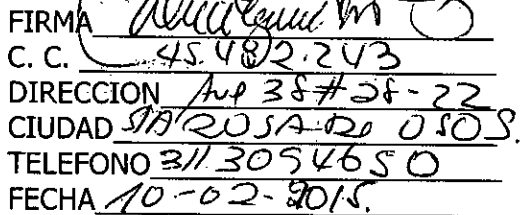 FIRMA
C. C. 45.482.243
DIRECCION Ave 38 # 28-22
CIUDAD STA ROSA De OSOS.
TELEFONO 311.3054650
FECHA 10-02-2015.